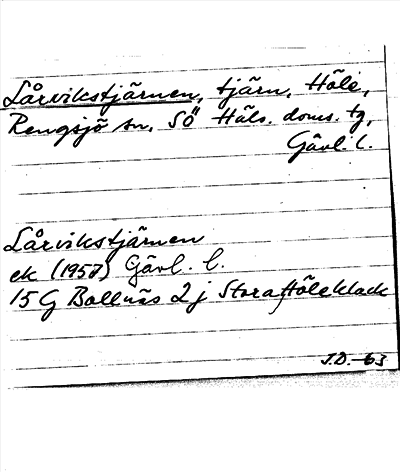 Lårvikstjärnen, tjärn, Höle,
Rengsjö sn, SÖ Häls. doms. tg,
Gävl. l.
Lårvikstjärnen
ek (1957) Gävl. l.
15 G Bollnäs 2 j Stora Höleklack
J.D. -63